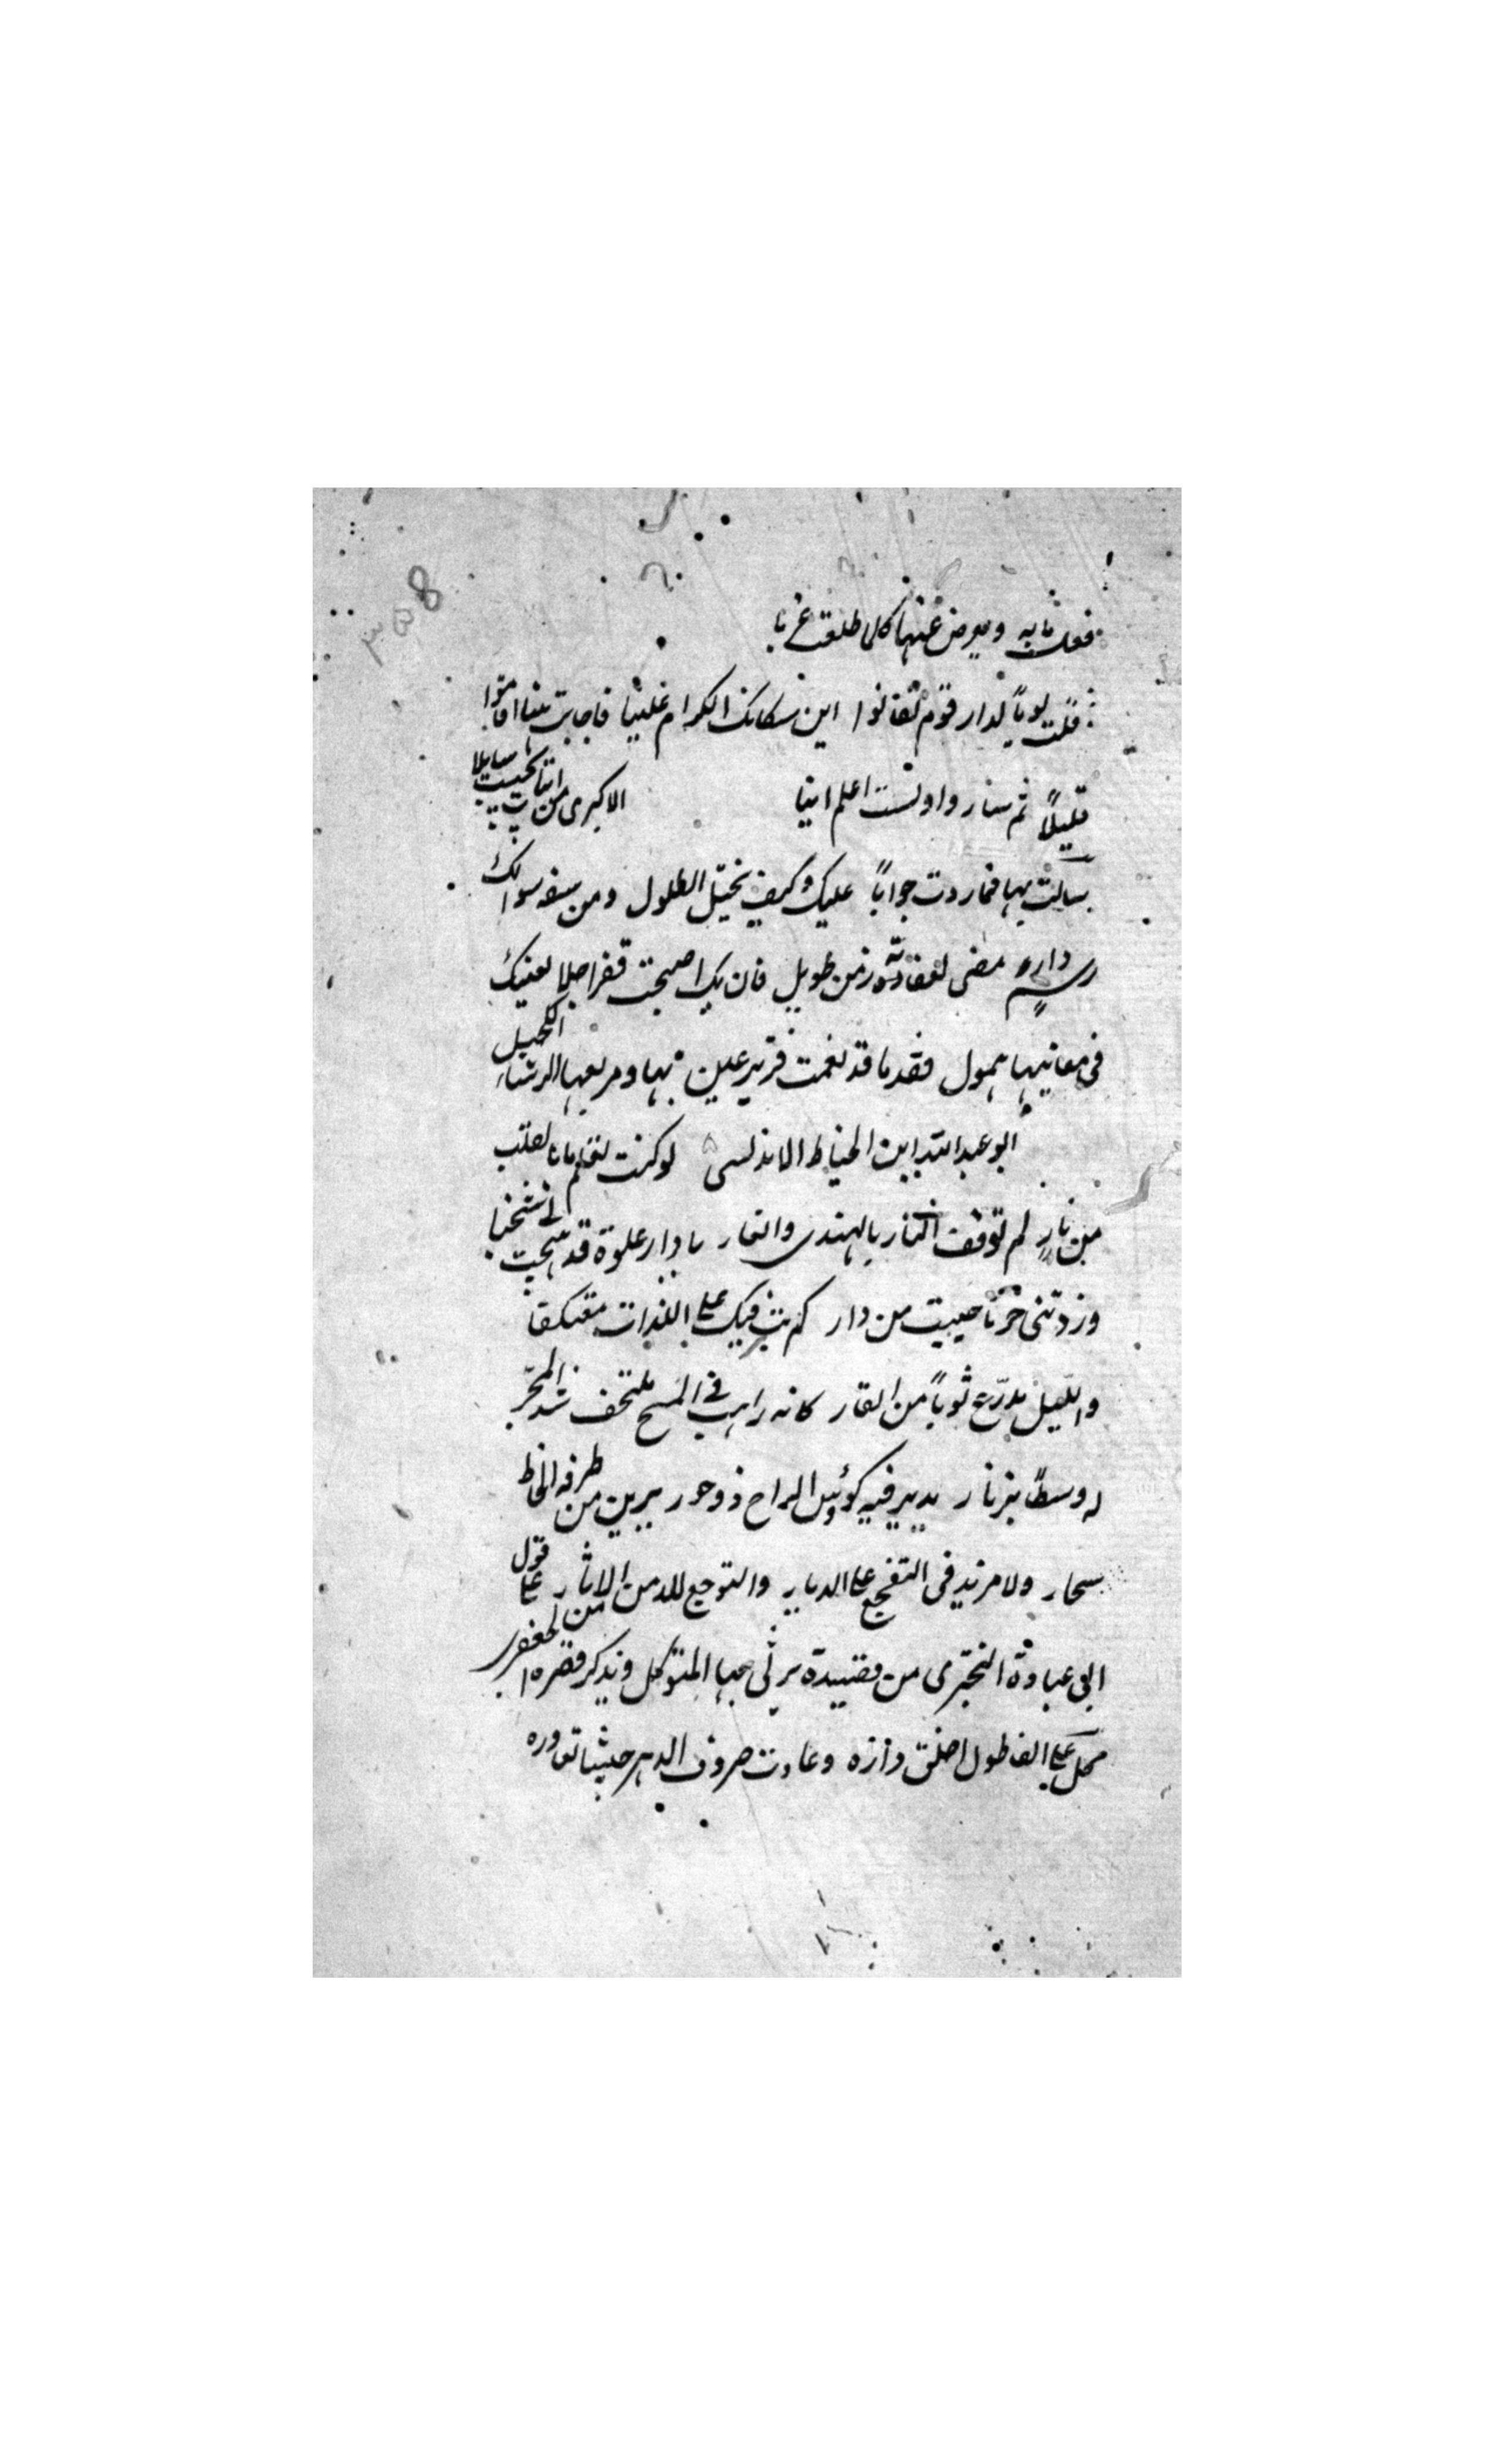 فعلت ثابه ويعرض عنها كلى طلقت غربا
قلت يوماً لدار قوم تفانوا اين سكانك الكرام علينا فاجابت هنا اقاموا
قليلاً ثم ساروا ولست اعلم اينا الاكبرى من ابيات
سالت بها فما ردت جواباً عليك وكيف تخيل الطلول ومن سفه سوالك
رسم دار مضى لعفاته زمن طويل فان يك اصبحت قفرا خلا لعينك
فى مغانيها همول فقدما قد نعمت قرير عين بها وبربعها الرشاء الكحيل
ابو عبد الله ابن الخياط الاندلسى لو كنت تعلم ما بالقلب
من نار لم توقف النار بالهندى والغار يا دار علوة قد هيجت لى شجنا
وزدتنى حزنا حييت من دار كم بت فيك على اللذات معتكفا
والليل مدرع ثوباً من القار كانه راهب فى المسح ملتحف شد المجر
له وسطاً بزنار يدير فيه كؤس الراح ذو حور يريك من طرفه الحاظ
سحار ولا مزيد فى التفجع على الديار والتوجع للدمن والاثار على قول
ابى عبادة البحترى من قصيدة يرثى بها المتوكل ويذكر قصره الجعفرى
محل على القاطول اخلق داثره وعادت صروف الدهر جيشا تغاوره